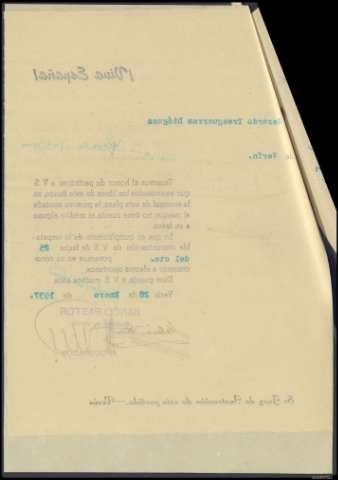 ¡Viva España!
Gerardo Tresguerras Diéguez
de Verín.
Tenemos el honor de participar a V. S.
que examinados los libros de esta Banca, en
la sucursal de esta plaza la persona anotada
al margen no tiene cuenta ni crédito alguno
a su favor.
Lo que en cumplimiento de lo respeta-
ble comunicación de V. S. de fecha 25
del cte. ponemos en su cono-
cimiento a efectos oportunos.
Dios guarde a V. S. muchos años.
Verín 28 de Enero de 1937.
BANCO PASTOR
Sr. Juez de Instrucción de este partido.—Verín